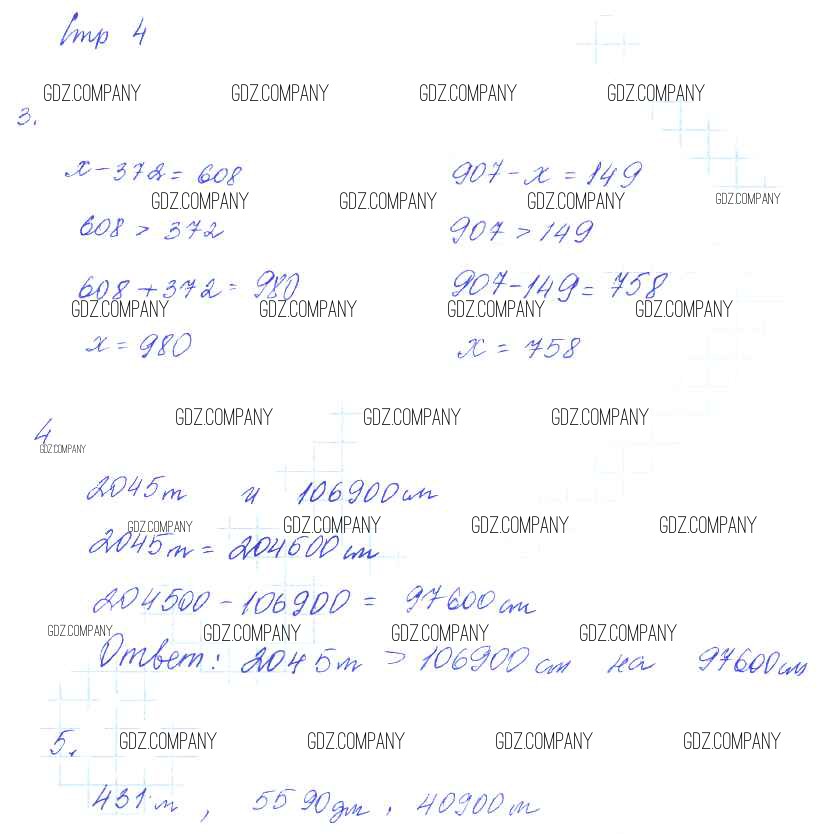 Стр 4
GDZ.COMPANY GDZ.COMPANY GDZ.COMPANY GDZ.COMPANY
3.
x - 372 = 608 907 - x = 149
GDZ.COMPANY GDZ.COMPANY GDZ.COMPANY GDZ.COMPANY
608 > 372 907 > 149
608 + 372 = 980 907 - 149 = 758
GDZ.COMPANY GDZ.COMPANY GDZ.COMPANY GDZ.COMPANY
x = 980 x = 758
GDZ.COMPANY GDZ.COMPANY GDZ.COMPANY
4
GDZ.COMPANY
2045 m и 106900 cm
GDZ.COMPANY GDZ.COMPANY GDZ.COMPANY GDZ.COMPANY
2045 m = 204500 cm
204500 - 106900 = 97600 cm
GDZ.COMPANY GDZ.COMPANY GDZ.COMPANY GDZ.COMPANY
Ответ: 2045 m > 106900 cm на 97600 cm
5.
GDZ.COMPANY GDZ.COMPANY GDZ.COMPANY GDZ.COMPANY
431 m, 5590 дм, 40900 m